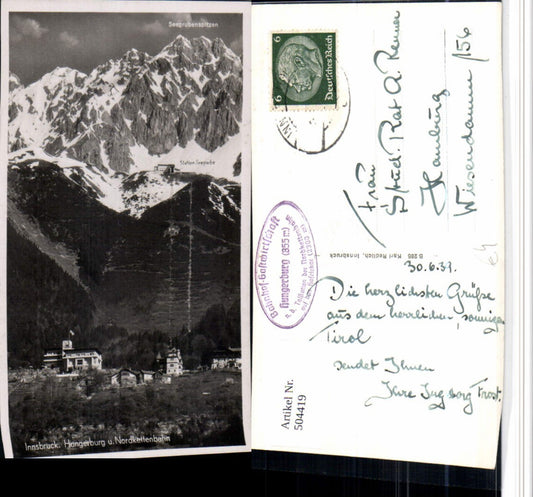 Seegrubenspitzen
Station Seegrube
Innsbruck. Hungerburg u. Nordkettenbahn
6 Deutsches Reich 6
Frau
Stud. Rat A. Renner
Hamburg
Wiesendamm 156
B 285 Karl Redlich, Innsbruck
Bahnhof-Gastwirtschaft
Hungerburg (855 m)
a. d. Talstation der Nordkettenbahn
30.6.39.
Die herzlichsten Grüße
aus dem herrlichen, sonnigen
Tirol
sendet Ihnen
Ihre Ingeborg Frost.
Artikel Nr.
504419